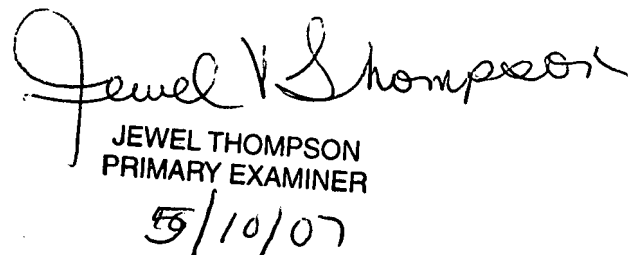 Jewel V Thompson
JEWEL THOMPSON
PRIMARY EXAMINER
5/10/07